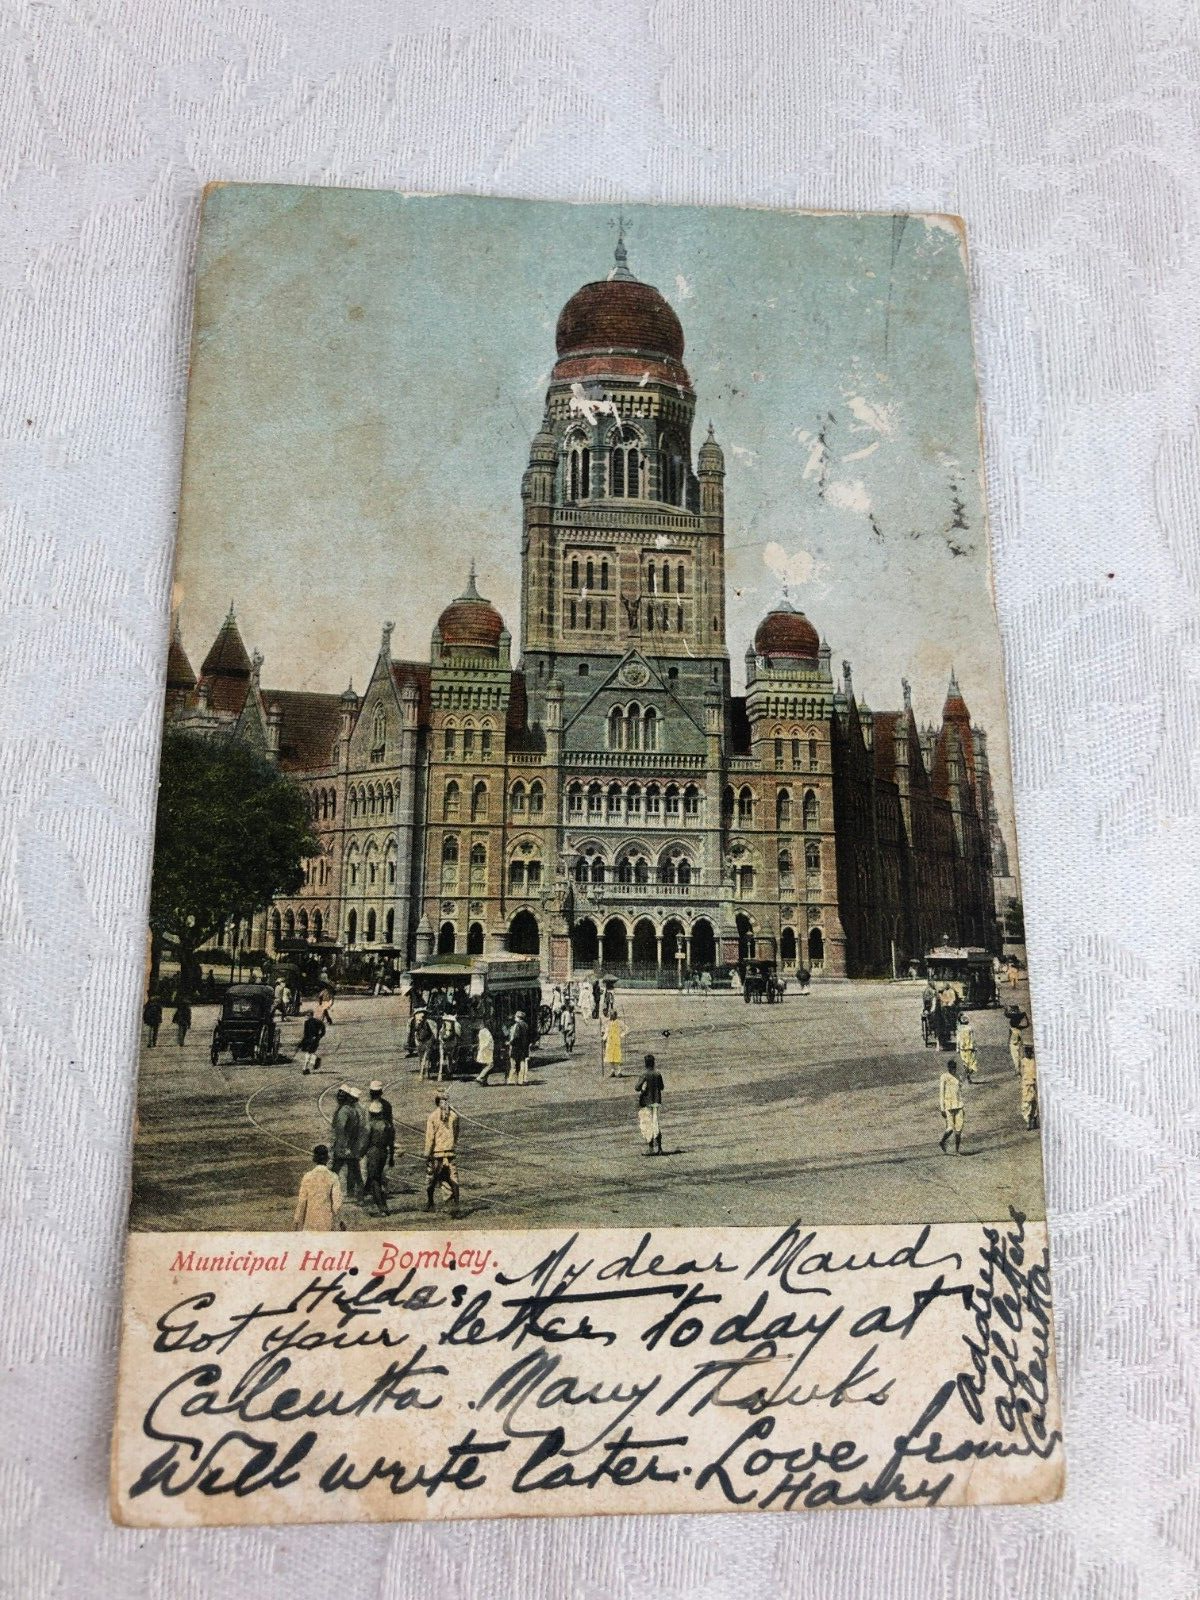 Municipal Hall, Bombay.
My dear Maud
Hilda's
Got your letter today at
Calcutta. Many thanks
Will write later. Love from
Harry
Address
all letters
Calcutta